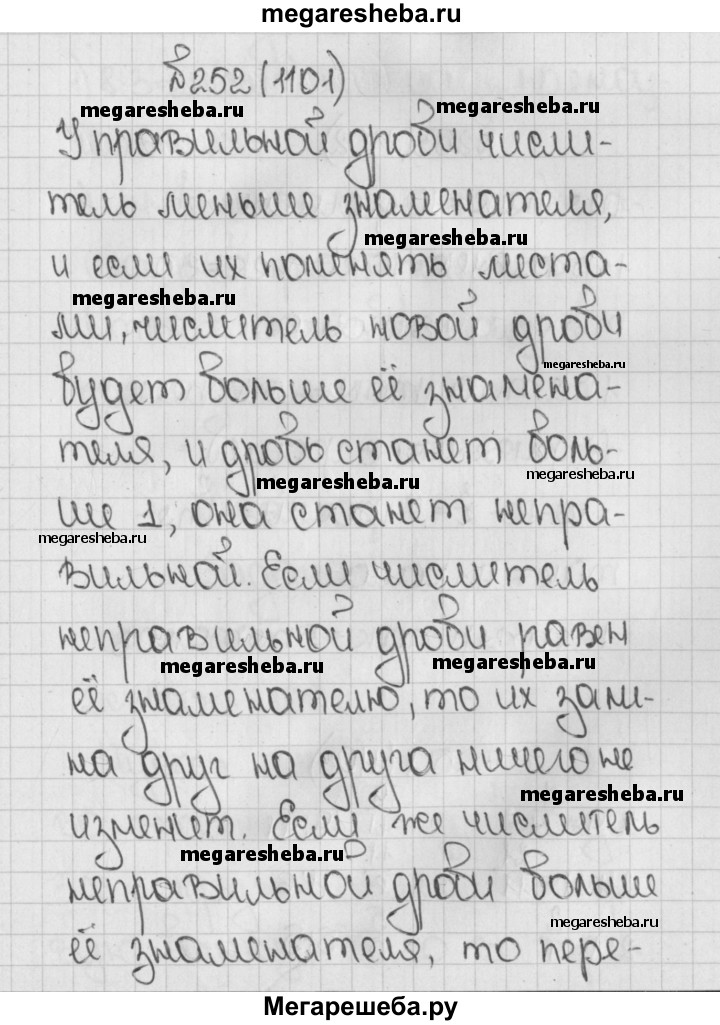 megaresheba.ru
№252(1101)
megaresheba.ru megaresheba.ru
У правильной дроби числи-
тель меньше знаменателя,
megaresheba.ru
и если их поменять места-
megaresheba.ru
ми, числитель новой дроби
megaresheba.ru
будет больше её знамена-
теля, и дробь станет боль-
megaresheba.ru megaresheba.ru
ше 1, она станет непра-
megaresheba.ru megaresheba.ru
вильной. Если числитель
неправильной дроби равен
megaresheba.ru megaresheba.ru
её знаменателю, то их заме-
на друг на друга ничего не
megaresheba.ru
изменит. Если же числитель
megaresheba.ru
неправильной дроби больше
megaresheba.ru
её знаменателя, то пере-
Мегарешеба.ру